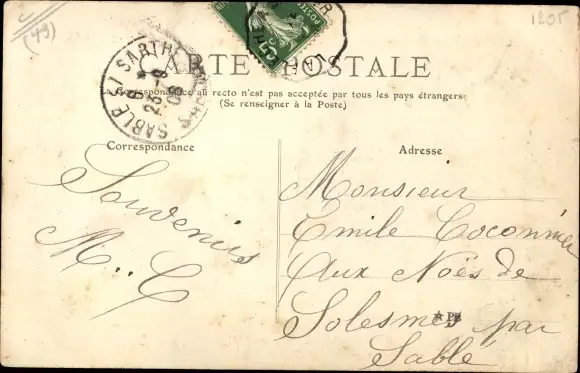 (49)
1205
CARTE POSTALE
La correspondance au recto n'est pas acceptée par tous les pays étrangers
(Se renseigner à la Poste)
SABLÉ S/ SARTHE
23 -9
08
Correspondance
Souvenirs
M.. C
Adresse
Monsieur
Emile Coconnier
Aux Noës de
Solesmes par
Sablé